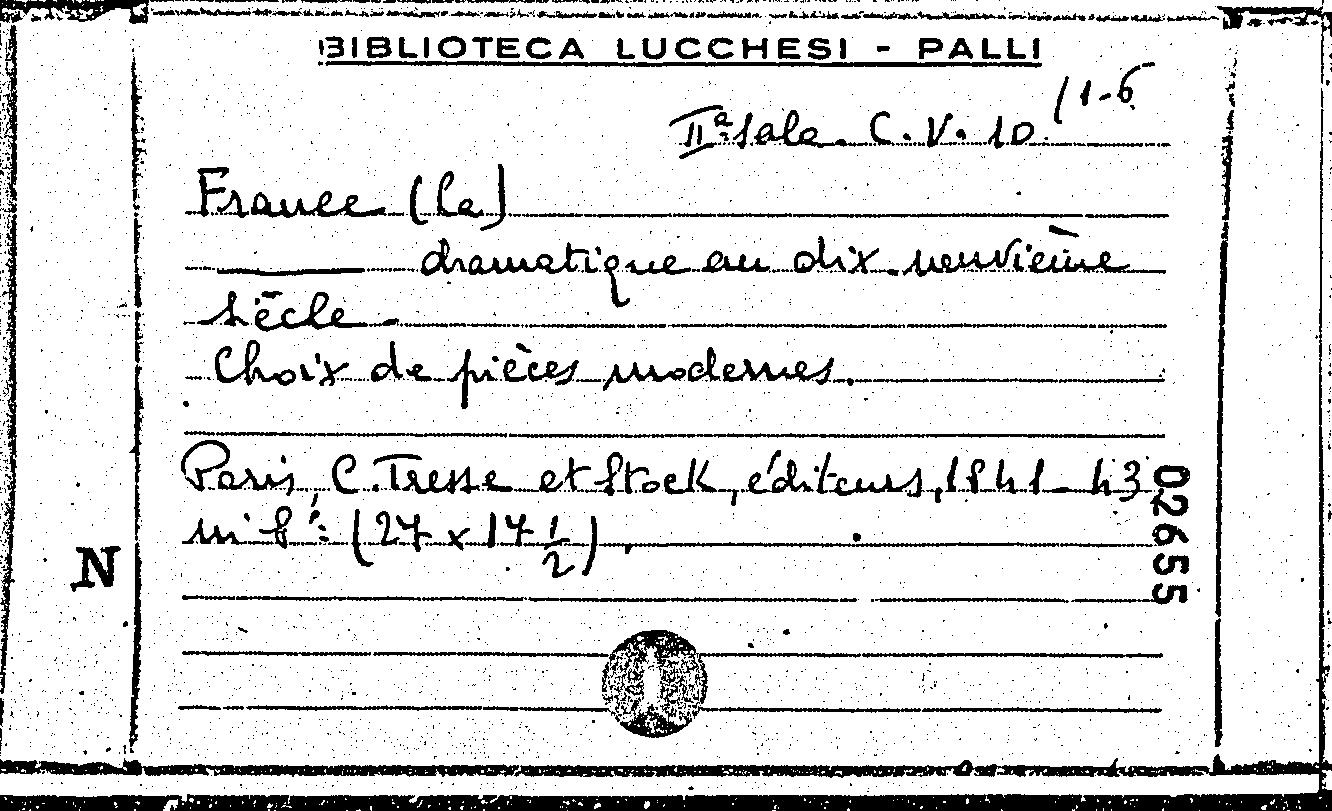 BIBLIOTECA LUCCHESI - PALLI
IIª Sala. C. V. 10 (1-6
France (la)
——— dramatique au dix-neuvième
siècle -
Choix de pièces modernes.
Paris, C. Tresse et Stock, éditeurs, 1841-43
in 8°: (27 x 17 1/2).
02655
N